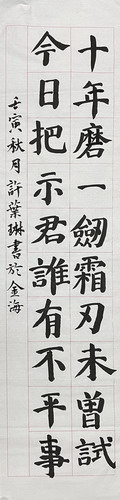 十年磨一劔霜刃未曽試
今日把示君誰有不平事
壬寅秋月許葉琳書於金海